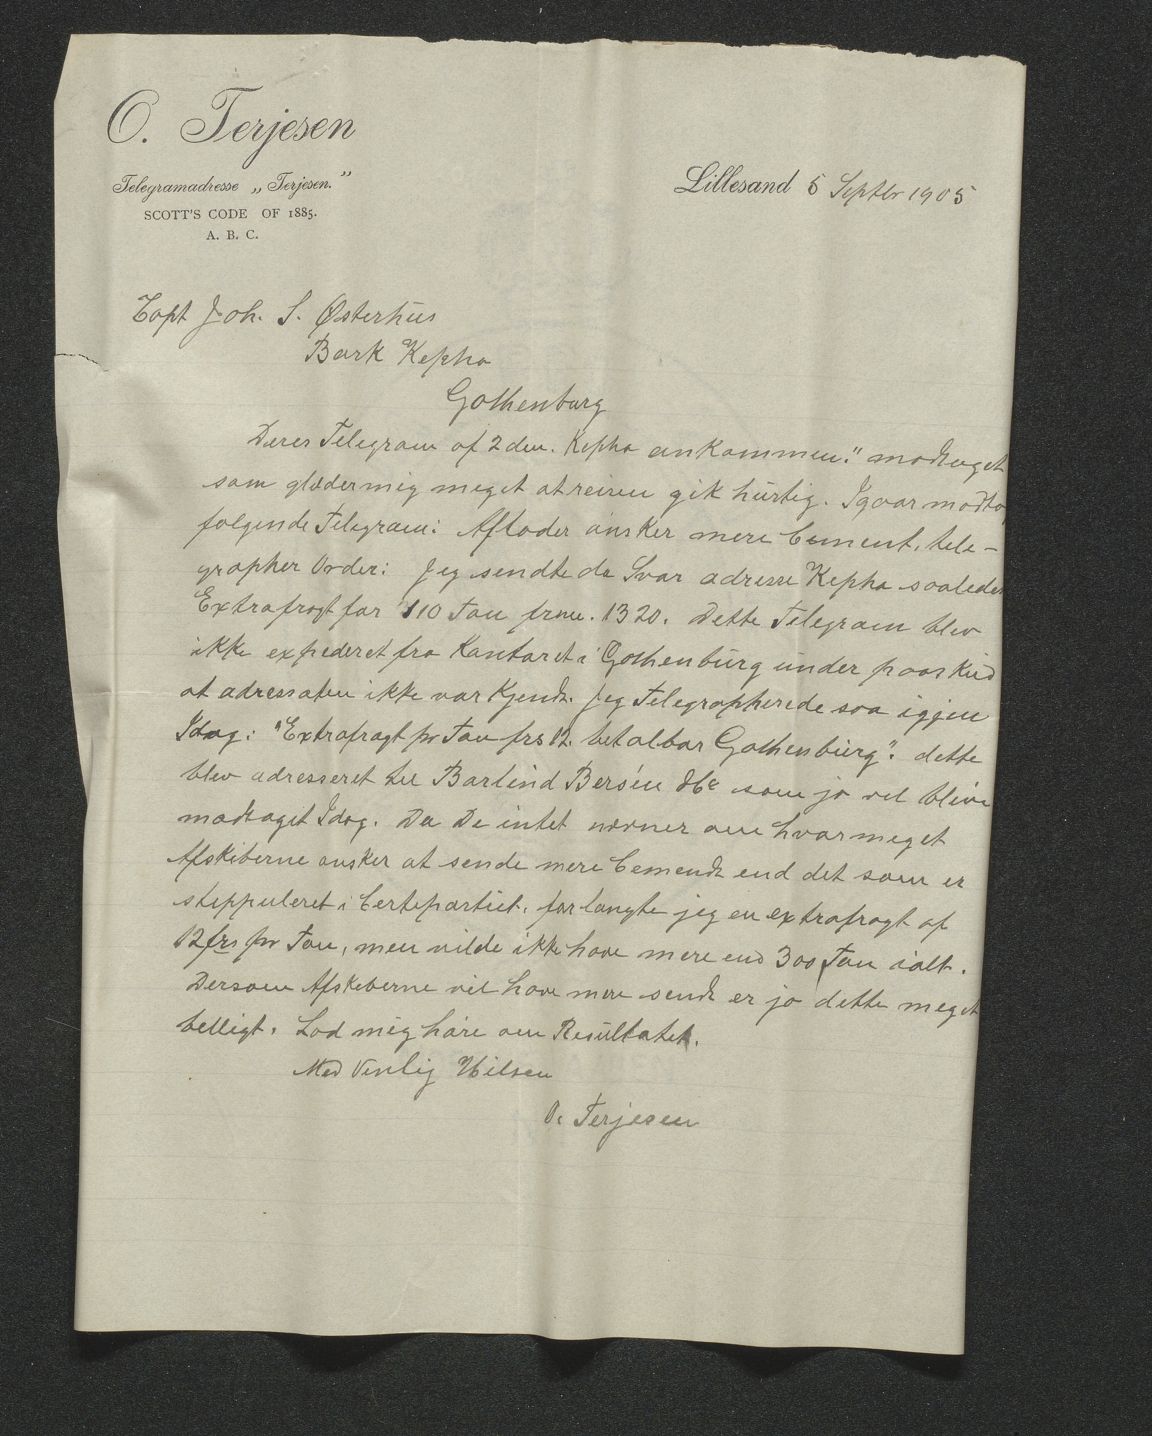 O. Terjesen
Telegramadresse „Terjesen.”
SCOTT'S CODE OF 1885.
A. B. C.
Lillesand 5 Septbr 1905
Capt Joh. S. Østerhus
Bark Kepha
Gothenburg
Deres Telegram af 2den. Kepha ankommen." modtaget
som glæder mig meget at reisen gik hurtig. Igaar modto
følgende Telegram: Aflader ønsker mere Cement, tele-
grapher Order: Jeg sendte da Svar adresse Kepha saaledes
Extrafragt for 110 Ton frnc. 1320. Dette Telegram blev
ikke expederet fra Kontoret i Gothenburg under paaskud
at adressaten ikke var kjendt. Jeg Telegrapherede saa igjen
Idag: "Extrafragt pr Ton frs 12. betalbar Gothenburg". dette
blev adresseret til Barlind Bersén &Co som jo vel bliver
modtaget Idag. Da De intet nævner om hvor meget
Afskiberne ønsker at sende mere Cemendt end det som er
steppuleret i Certepartiet, forlangte jeg en extrafragt af
12 frs pr Ton, men vilde ikke have mere end 300 Ton ialt.
Dersom Afskiberne vil have mere sendt er jo dette meget
belligt. Lad mig høre om Resultatet.
Med Venlig Hilsen
O. Terjesen